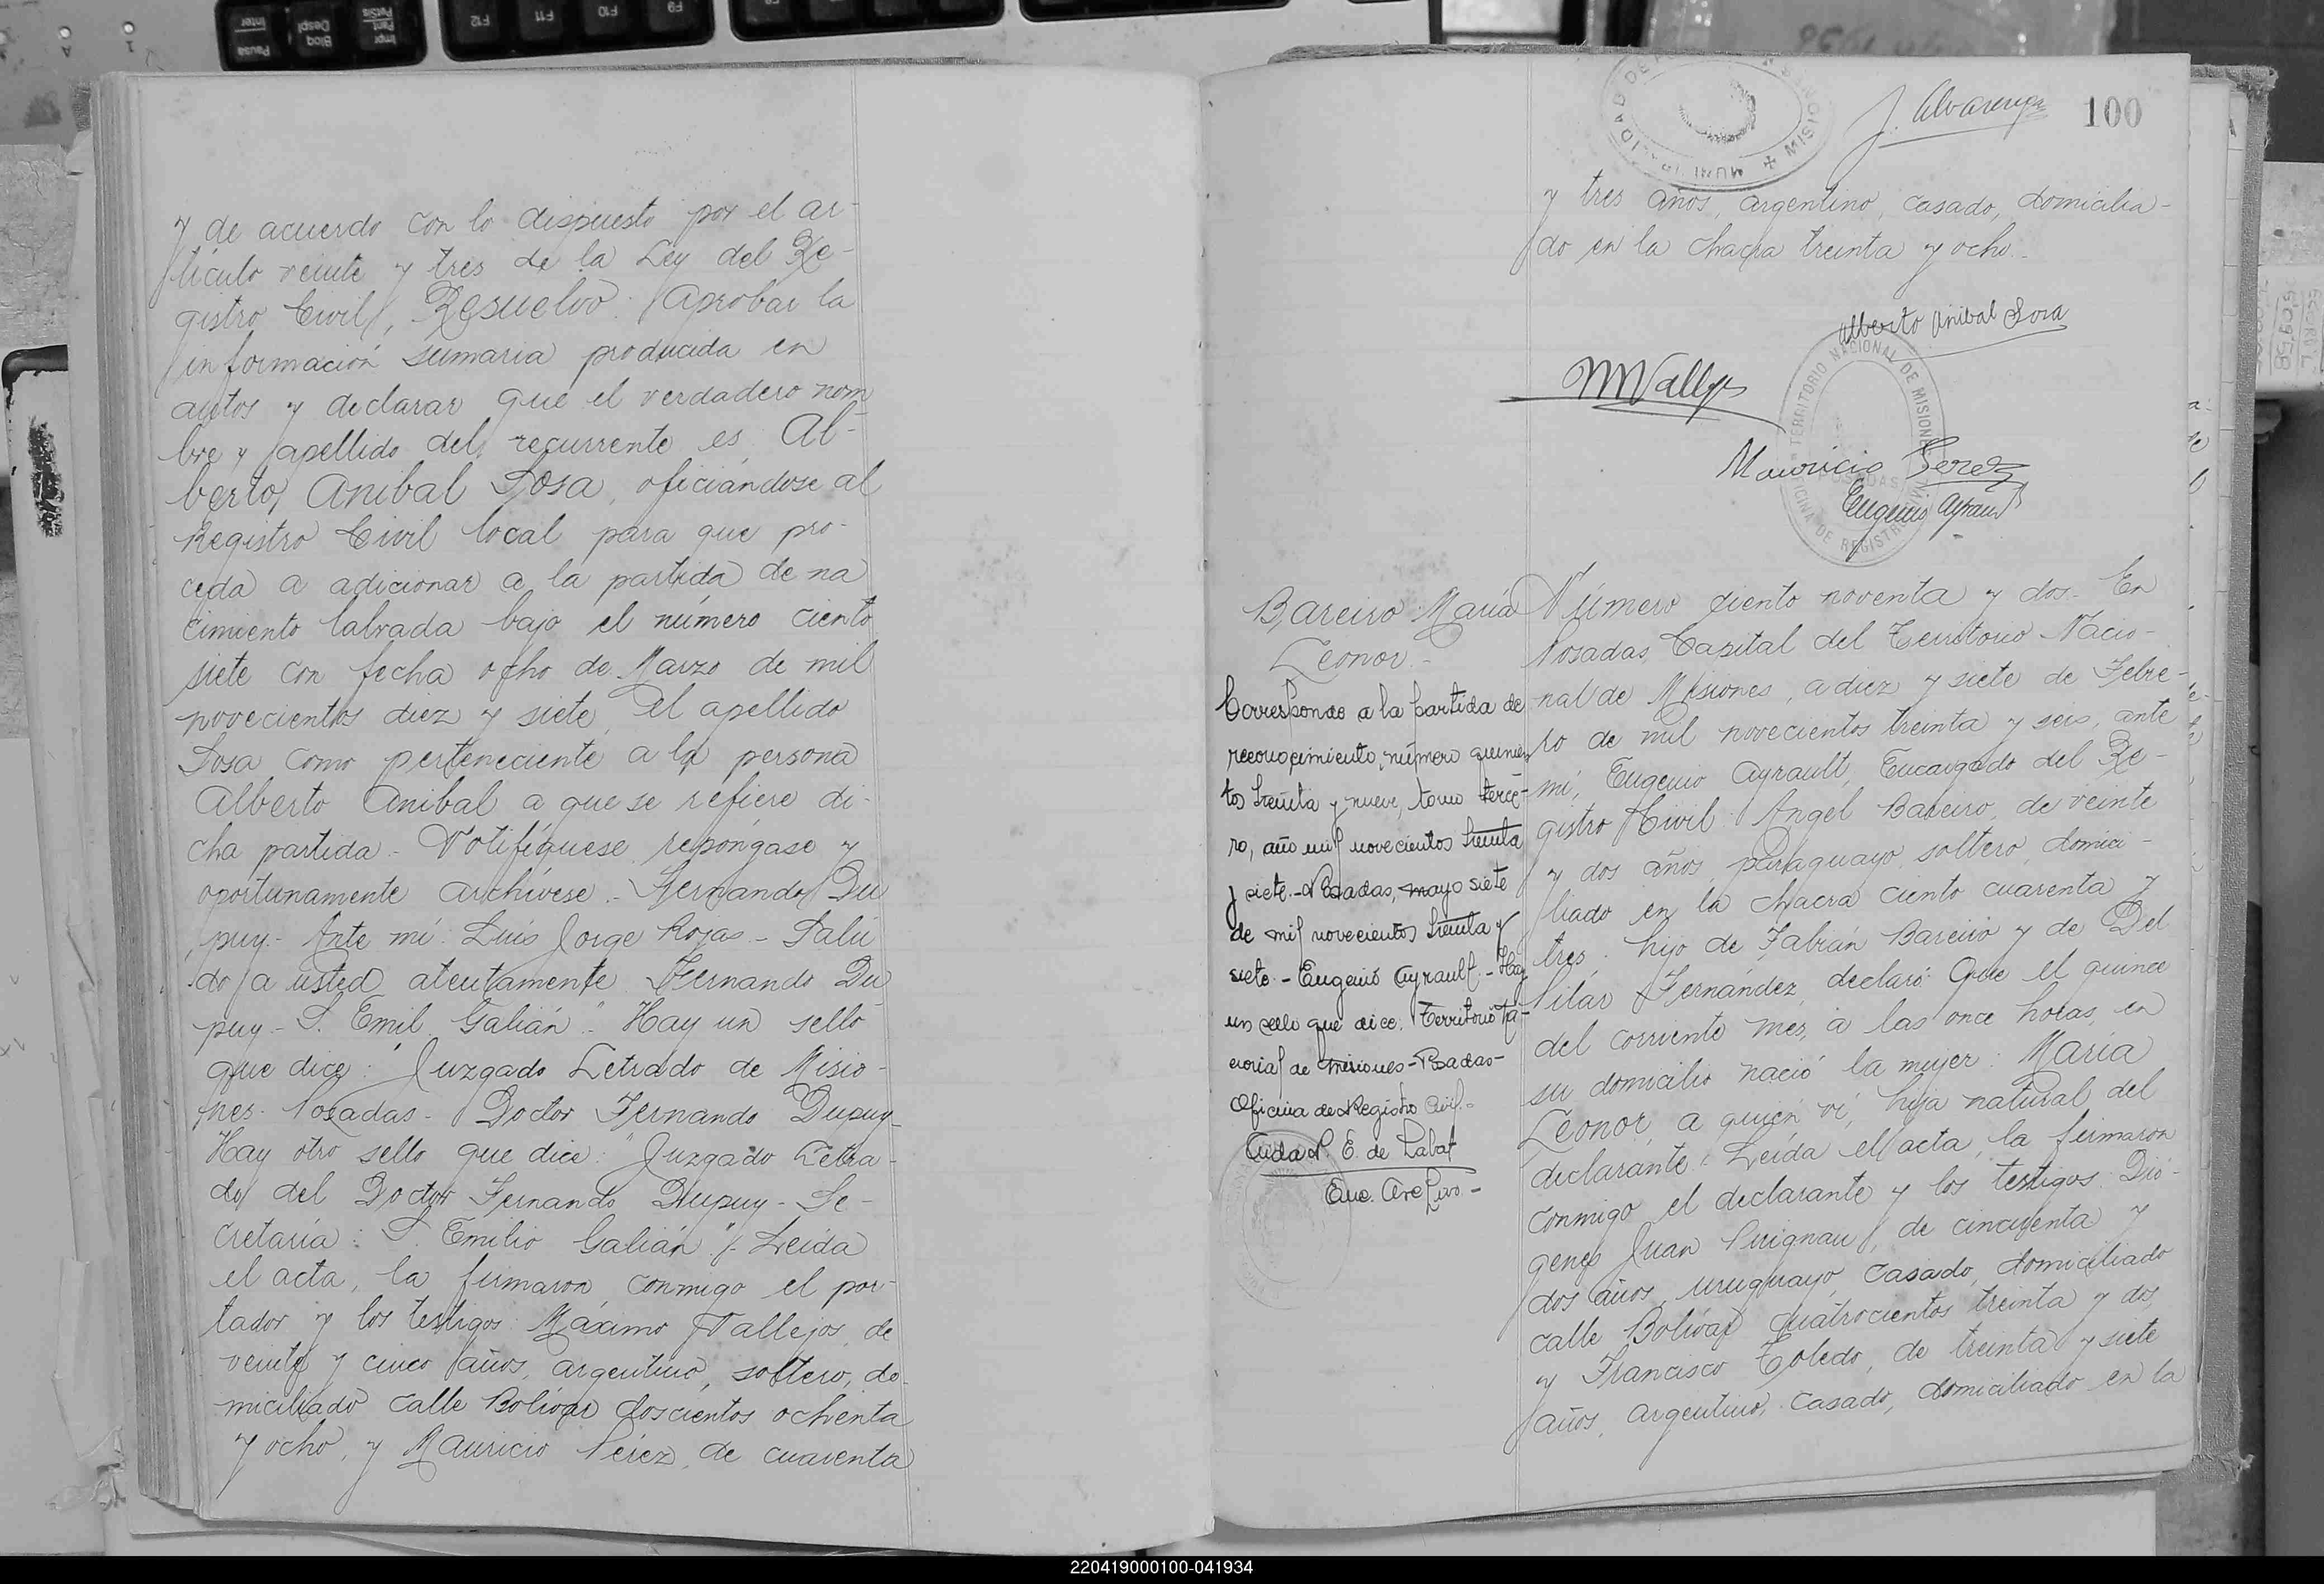 y de acuerdo con lo dispuesto por el ar-
tículo veinte y tres de la Ley del Re-
gistro Civil, Resuelvo: Aprobar la
información sumaria producida en
autos y declarar que el verdadero nom
bre y apellido del recurrente es Al-
berto Anibal Sosa, oficiándose al
Registro Civil local para que pro-
ceda a adicionar a la partida de na
cimiento labrada bajo el número ciento
siete con fecha ocho de Marzo de mil
novecientos diez y siete, el apellido
Sosa como perteneciente a la persona
Alberto Anibal a que se refiere di-
cha partida - Notifíquese repóngase y
oportunamente archívese - Fernando Du
puy - Ante mí: Luis Jorge Rojas - Salú
do a usted atentamente Fernando Du
puy - S. Emil Galián" - Hay un sello
que dice: "Juzgado Letrado de Misio-
nes - Posadas - Doctor Fernando Dupuy -
Hay otro sello que dice: "Juzgado Letra-
do del Doctor Fernando Dupuy - Se-
cretaría: S. Emilio Galián" - Leída
el acta, la firmaron conmigo el por-
tador y los testigos: Máximo Vallejos, de
veinte y cinco años, argentino, soltero, do-
miciliado calle Bolívar doscientos ochenta
y ocho, y Mauricio Pérez, de cuarenta
J. Alvarenga
100
MISIONES
y tres años, argentino, casado, domicilia-
do en la chacra treinta y ocho.-
Alberto Anibal Sosa
MVallejos
TERRITORIO NACIONAL DE MISIONES
POSADAS
OFICINA DE REGISTRO CIVIL
Mauricio Perez
Eugenio Ayrault
Bareiro María
Leonor.-
Corresponde a la partida de
reconocimiento, número quinien
tos treinta y nueve, tomo terce-
ro, año mil novecientos treinta
y siete.- Posadas, mayo siete
de mil novecientos treinta y
siete.- Eugenio Ayrault.- Hay
un sello que dice: Territorio Na-
cional de Misiones - Posadas -
Oficina de Registro Civil.-
P. E. de Labat
Enc.
Número ciento noventa y dos.- En
Posadas, Capital del Territorio Nacio-
nal de Misiones, a diez y siete de Febre-
ro de mil novecientos treinta y seis, ante
mí, Eugenio Ayrault, Encargado del Re-
gistro Civil: Angel Bareiro, de veinte
y dos años, paraguayo, soltero, domici-
liado en la chacra ciento cuarenta y
tres, hijo de Fabián Bareiro y de Del
Pilar Fernández, declaró: Que el quince
del corriente mes, a las once horas, en
su domicilio nació la mujer: María
Leonor, a quien ví, hija natural del
declarante. Leída el acta, la firmaron
conmigo el declarante y los testigos: Dió-
genes Juan Purignau, de cincuenta y
dos años, uruguayo, casado, domiciliado
calle Bolívar cuatrocientos treinta y dos,
y Francisco Toledo, de treinta y siete
años, argentino, casado, domiciliado en la
220419000100-041934